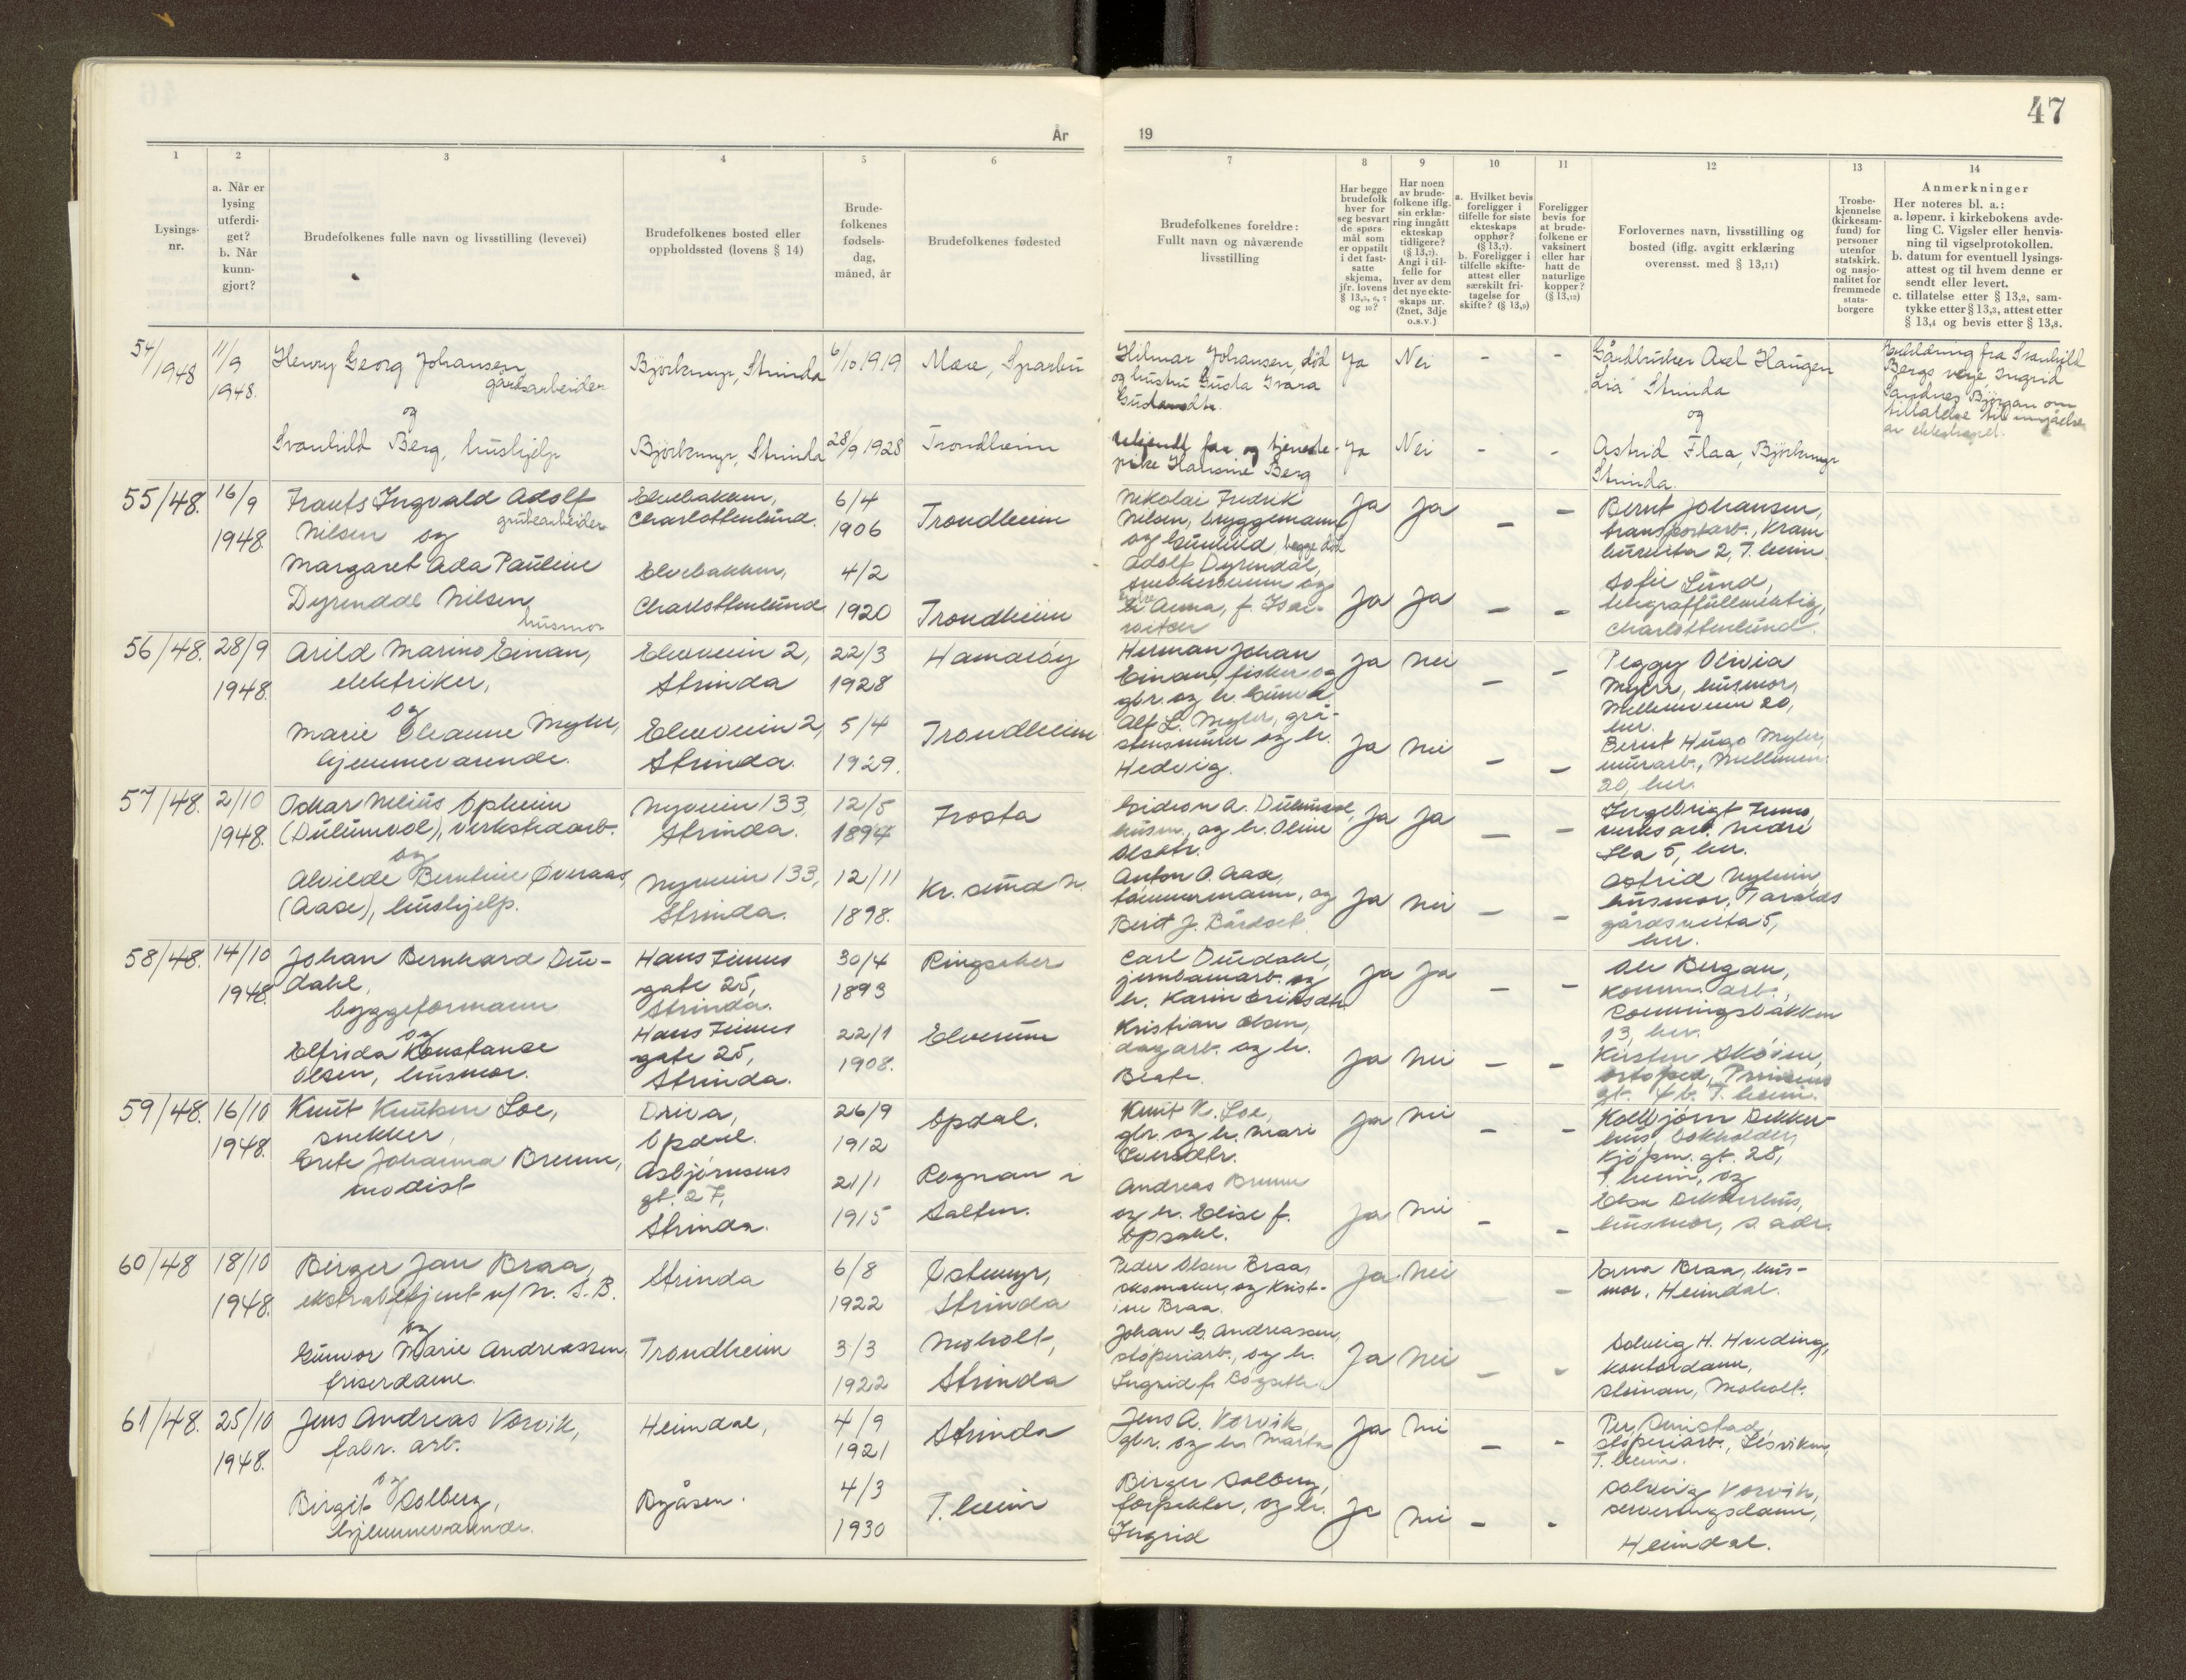 47
År
19
1
2
3
4
5
6
7
8
9
10
11
12
13
14
Lysings-
nr.
a. Når er
lysing
utferdi-
get?
b. Når
kunn-
gjort?
Brudefolkenes fulle navn og livsstilling (levevei)
Brudefolkenes bosted eller
oppholdssted (lovens § 14)
Brude-
folkenes
fødsels-
dag,
måned, år
Brudefolkenes fødested
Brudefolkenes foreldre:
Fullt navn og nåværende
livsstilling
Har begge
brudefolk
hver for
seg besvart
de spørs-
mål som
er oppstilt
i det fast-
satte
skjema,
jfr. lovens
§ 13,5, 6, 7
og 10?
Har noen
av brude-
folkene iflg.
sin erklæ-
ring inngått
ekteskap
tidligere?
(§ 13,7).
Angi i til-
felle for
hver av dem
det nye ekte-
skaps nr.
(2net, 3dje
o.s.v.)
a. Hvilket bevis
foreligger i
tilfelle for siste
ekteskaps
opphør?
(§ 13,7).
b. Foreligger i
tilfelle skifte-
attest eller
særskilt fri-
tagelse for
skifte? (§ 13,9)
Foreligger
bevis for
at brude-
folkene er
vaksinert
eller har
hatt de
naturlige
kopper?
(§ 13,12)
Forlovernes navn, livsstilling og
bosted (iflg. avgitt erklæring
overensst. med § 13,11)
Trosbe-
kjennelse
(kirkesam-
fund) for
personer
utenfor
statskirk.
og nasjo-
nalitet for
fremmede
stats-
borgere
Anmerkninger
Her noteres bl. a.:
a. løpenr. i kirkebokens avde-
ling C. Vigsler eller henvis-
ning til vigselprotokollen.
b. datum for eventuell lysings-
attest og til hvem denne er
sendt eller levert.
c. tillatelse etter § 13,2, sam-
tykke etter § 13,3, attest etter
§ 13,4 og bevis etter § 13,8.
54/1948
11/9
1948.
Henry Georg Johansen,
gårdsarbeider
og
Svanhild Berg, hushjelp
Björkmyr, Strinda
Björkmyr, Strinda
6/10 1919
28/9 1928
Mære, Sparbu
Trondheim
Hilmar Johansen, död
og hustru Gusta Ivara
Ja Nei - -
ukjendt far og tjeneste-
pike Hansine Berg
Ja Nei - -
Gårdbruker Axel Haugen
"Lia" Strinda
og
Astrid Flaa, Björkmyr
Strinda.
Erklæring fra Svanhild
Bergs verje, Ingrid
Sandnes Björgan om
tillatelse til inngåelse
av ekteskapet.
55/48.
16/9
1948.
Frants Ingvald Adolf
grubearbeider
Nilsen og
Margaret Ada Pauline
Dyrendal Nilsen,
husmor
Elvebakken,
Charlottenlund.
Elvebakken,
Charlottenlund
6/4
1906
4/2
1920
Trondheim
Trondheim
Nikolai Fredrik
Nilsen, bryggemann
og Gunhild, begge död
Ja Ja - -
Adolf Dyrendal,
Anna, f. Isak-
Ja Ja - -
Bernt Johansen,
transportarb., Kram
2, T.heim.
Sofie Lund,
telegraffullmektig,
Charlottenlund.
56/48.
28/9
1948.
Arild Marino Einan,
elektriker,
og
Marie Oleanne Myhr,
hjemmeværende.
Elveveien 2,
Strinda
Elveveien 2,
Strinda.
22/3
1928
5/4
1929.
Hamaröy
Trondheim
Herman Johan
Einan, fisker og
gbr. og h.
Ja Nei - -
Alf L. Myhr, grå-
stensmurer og h.
Hedvig.
Ja Nei - -
Peggy Olivia
Myhr, husmor,
Mellemveien 20,
her.
Bernt Hugo Myhr,
murarb., Mellemv.
20, her.
57/48.
2/10
1948.
Oskar Melius Opheim
(Dulumvol), verkstedarb.
og
Alvilde Berntine Øveraas,
(Aase), hushjelp.
Nyveien 133,
Strinda.
Nyveien 133,
Strinda.
12/5
1894
12/11
1898.
Frosta
Kr. sund N.
Gideon A. Dulumvol,
husm., og h. Oline
Olsdtr.
Ja Ja - -
Anton O. Aase,
tömmermann, og
Berit J. Bårdset
Ja Nei - -
Ingebrigt
verksarb. Nedre
Ila 5, her.
Astrid Nyheim
husmor, Taralds
gårdsveita 5,
her.
58/48.
14/10
1948.
Johan Bernhard Due-
dahl,
byggeformann
og
Elfrida Konstanse
Olsen, husmor.
Hans Finnes
gate 25,
Strinda.
Hans Finnes
gate 25,
Strinda.
30/4
1893
22/1
1908.
Ringsaker
Elverum
Carl Duedahl,
jernbanearb. og
h. Karin Eriksdtr.
Ja Ja - -
Kristian Olsen,
dagarb. og h.
Beate.
Ja Nei - -
Ole Bergan,
komm. arb.,
Rönningsbakken
13, her.
Kirsten Sköien,
ortoped, Prinsens
gt. 4 b. T.heim.
59/48.
16/10
1948.
Knut Knutsen Loe,
snekker,
Grete Johanna Bremm,
modist
Driva,
Opdal.
Asbjörnsens
gt. 27,
Strinda.
26/9
1912
21/1
1915
Opdal.
Rognan i
Salten.
Knut K. Loe,
gbr. og h. Mari
Iversdtr.
Ja Nei - -
Andreas Bremm
og h. Elise f.
Opsahl.
Ja Nei - -
Kolbjörn Dekker-
hus, bokholder,
Kjöpm. gt. 28,
T.heim, og
Elsa Dekkerhus,
husmor, s. adr.
60/48
18/10
1948.
Birger Jan Braa,
ekstrabetjent v/ N. S. B.
og
Gunvor Marie Andreassen,
friserdame.
Strinda
Trondheim
6/8
1922
3/3
1922
Østmyr,
Strinda
Moholt,
Strinda
Peder Olsen Braa,
skomaker, og Krist-
ine Braa.
Ja Nei - -
Johan G. Andreassen,
stöperiarb., og h.
Ingrid f.
Ja Nei - -
Erna Braa, hus-
mor, Heimdal.
Solveig H. Hveding,
kontordame,
Steinan, Moholt.
61/48.
25/10
1948.
Jens Andreas Vorvik,
fabr. arb.
og
Birgit Solberg,
hjemmeværende.
Heimdal,
Byåsen.
4/9
1921
4/3
1930
Strinda
T.heim
Jens A. Vorvik,
gbr. og h. Marta
Ja Nei - -
Birger Solberg,
forpakter, og h.
Ingrid
Ja Nei - -
Per
stöperiarb.,
T.heim.
Solveig Vorvik,
serveringsdame,
Heimdal.